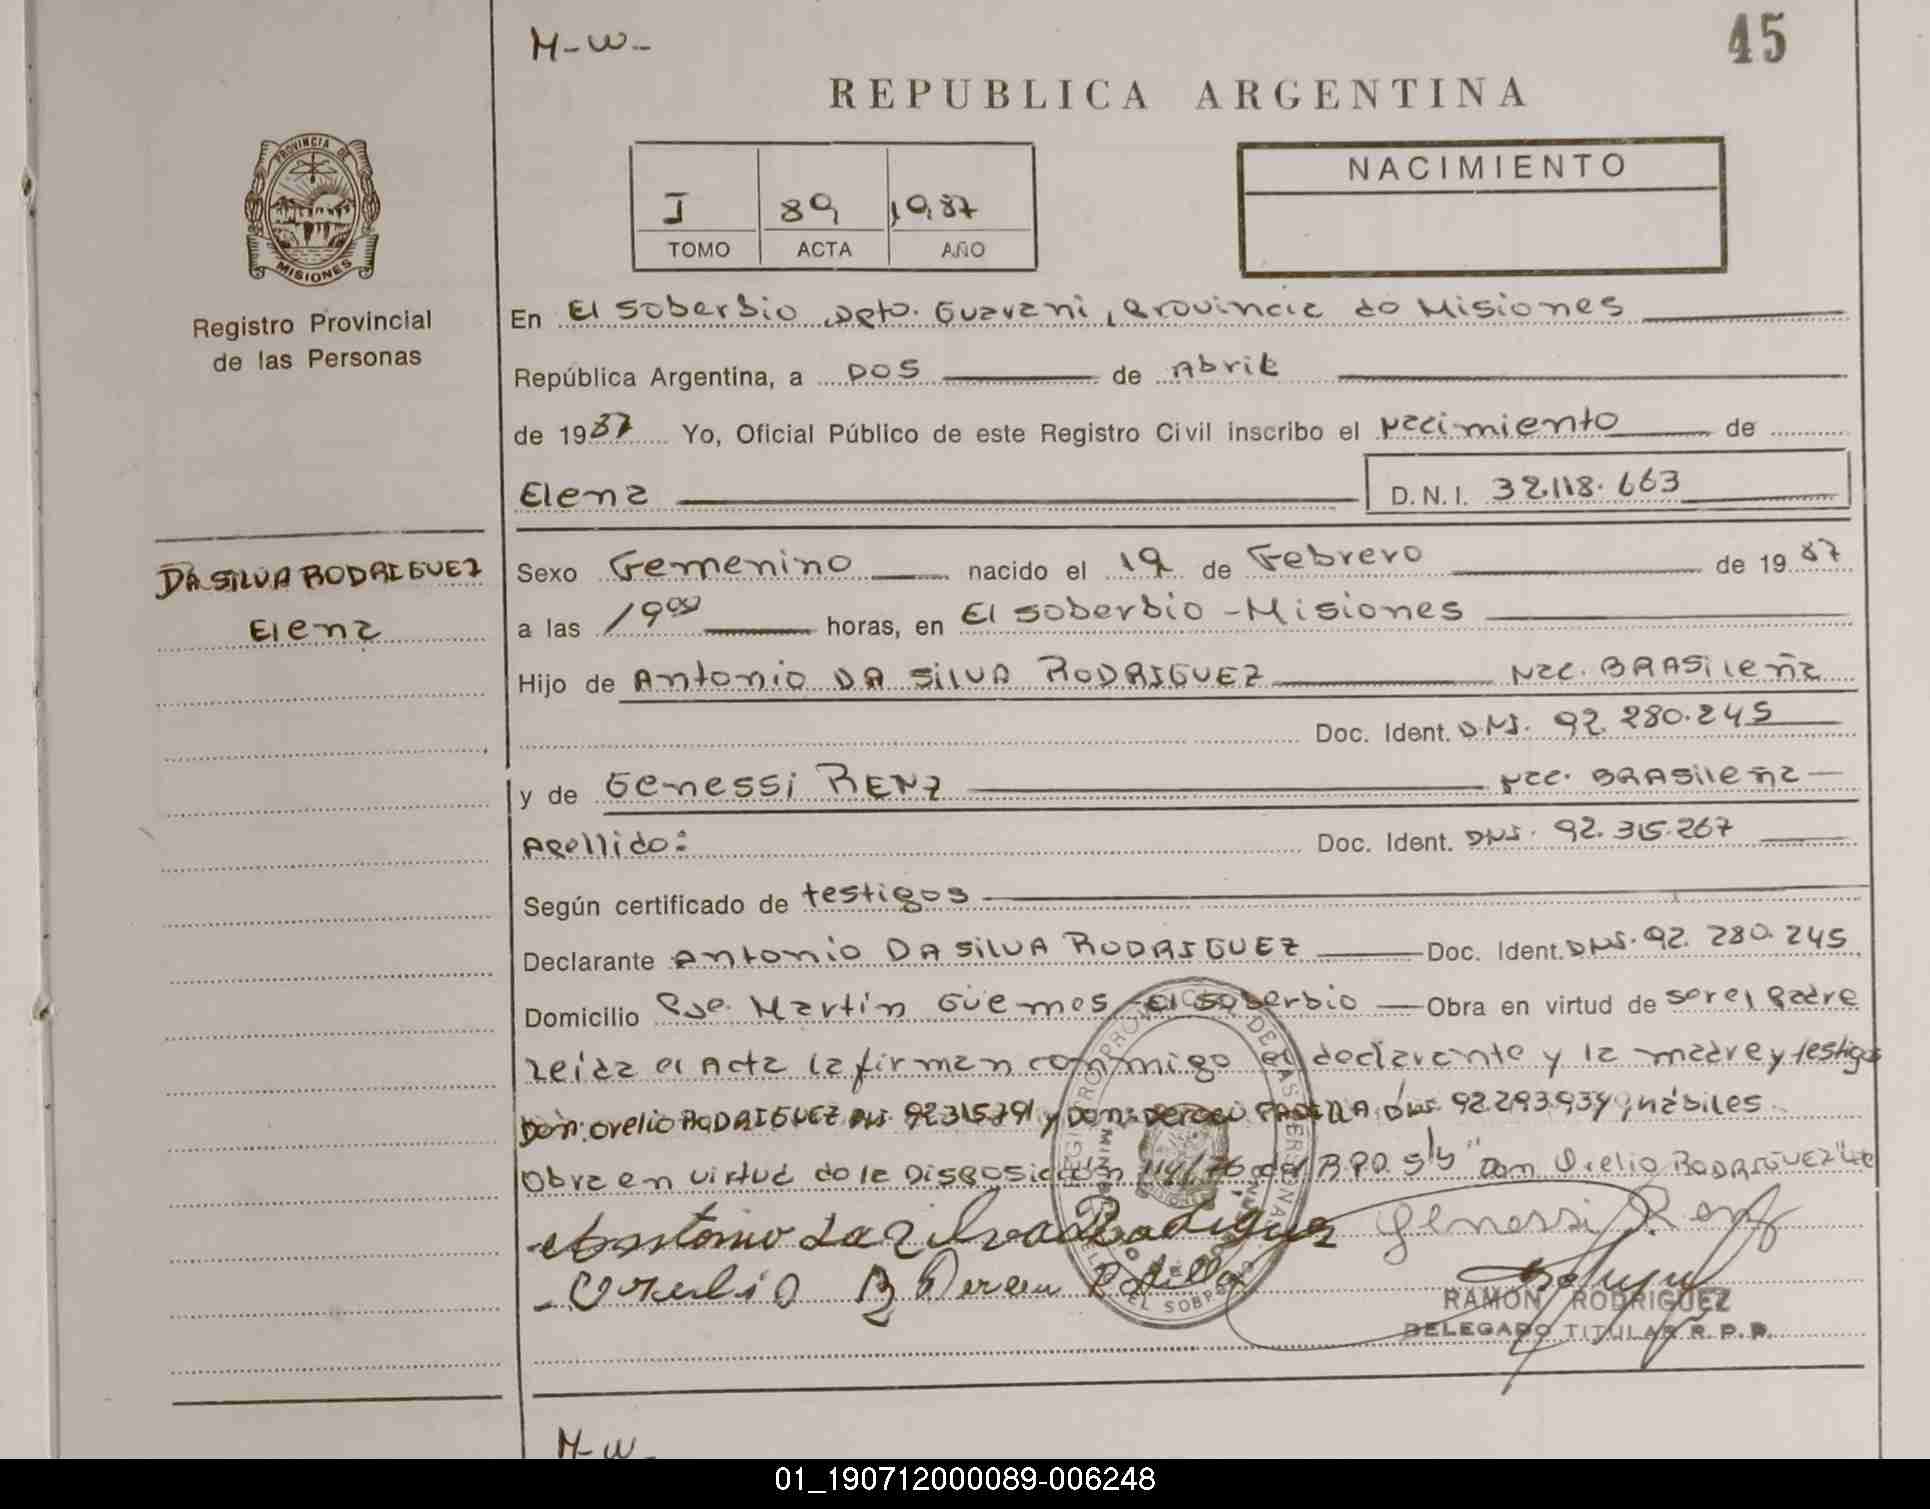 M-W-
45
REPUBLICA ARGENTINA
PROVINCIA DE
MISIONES
Registro Provincial
de las Personas
I 89 1987
TOMO ACTA AÑO
NACIMIENTO
En El Soberbio, Dpto. Guarani, Provincia de Misiones
República Argentina, a DOS de Abril
de 1987 Yo, Oficial Público de este Registro Civil inscribo el Nacimiento de
Elena D.N.I. 32.118.663
DA SILVA RODRIGUEZ
Elena
Sexo Femenino nacido el 19 de Febrero de 1987
a las 19 00 horas, en El Soberbio - Misiones
Hijo de Antonio DA SILVA RODRIGUEZ Nac. BRASileña
Doc. Ident. DNI. 92.280.245
y de Genessi RENZ Nac. BRASileña
Apellido: Doc. Ident. DNI. 92.315.267
Según certificado de testigos
Declarante Antonio DA SILVA RODRIGUEZ Doc. Ident. DNI. 92.280.245
Domicilio Pje. Martín Güemes - El Soberbio Obra en virtud de ser el Padre
Leida el Acta la firman conmigo el declarante y la madre y testigos
Don: Orelio RODRIGUEZ DNI. 92315791 y Don: Derceu PADILLA DNI. 92.293.934, hábiles
Obra en virtud de la Disposición 114/76 del R.P.P. S/b "Don Orelio RODRIGUEZ" Vale
Antonio da Silva Rodriguez Genessi Renz
Orelio R Derceu Padilla
RAMON RODRIGUEZ
DELEGADO TITULAR R.P.P.
M-W-
01_190712000089-006248